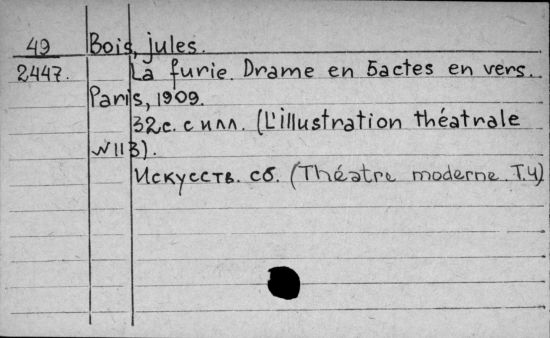 49 Bois, jules.
2447. La furie. Drame en 5 actes en vers.
Paris, 1909.
32с. с илл. (L'illustration théatrale
N113).
Искусств. сб. (Théatre moderne. T.4)